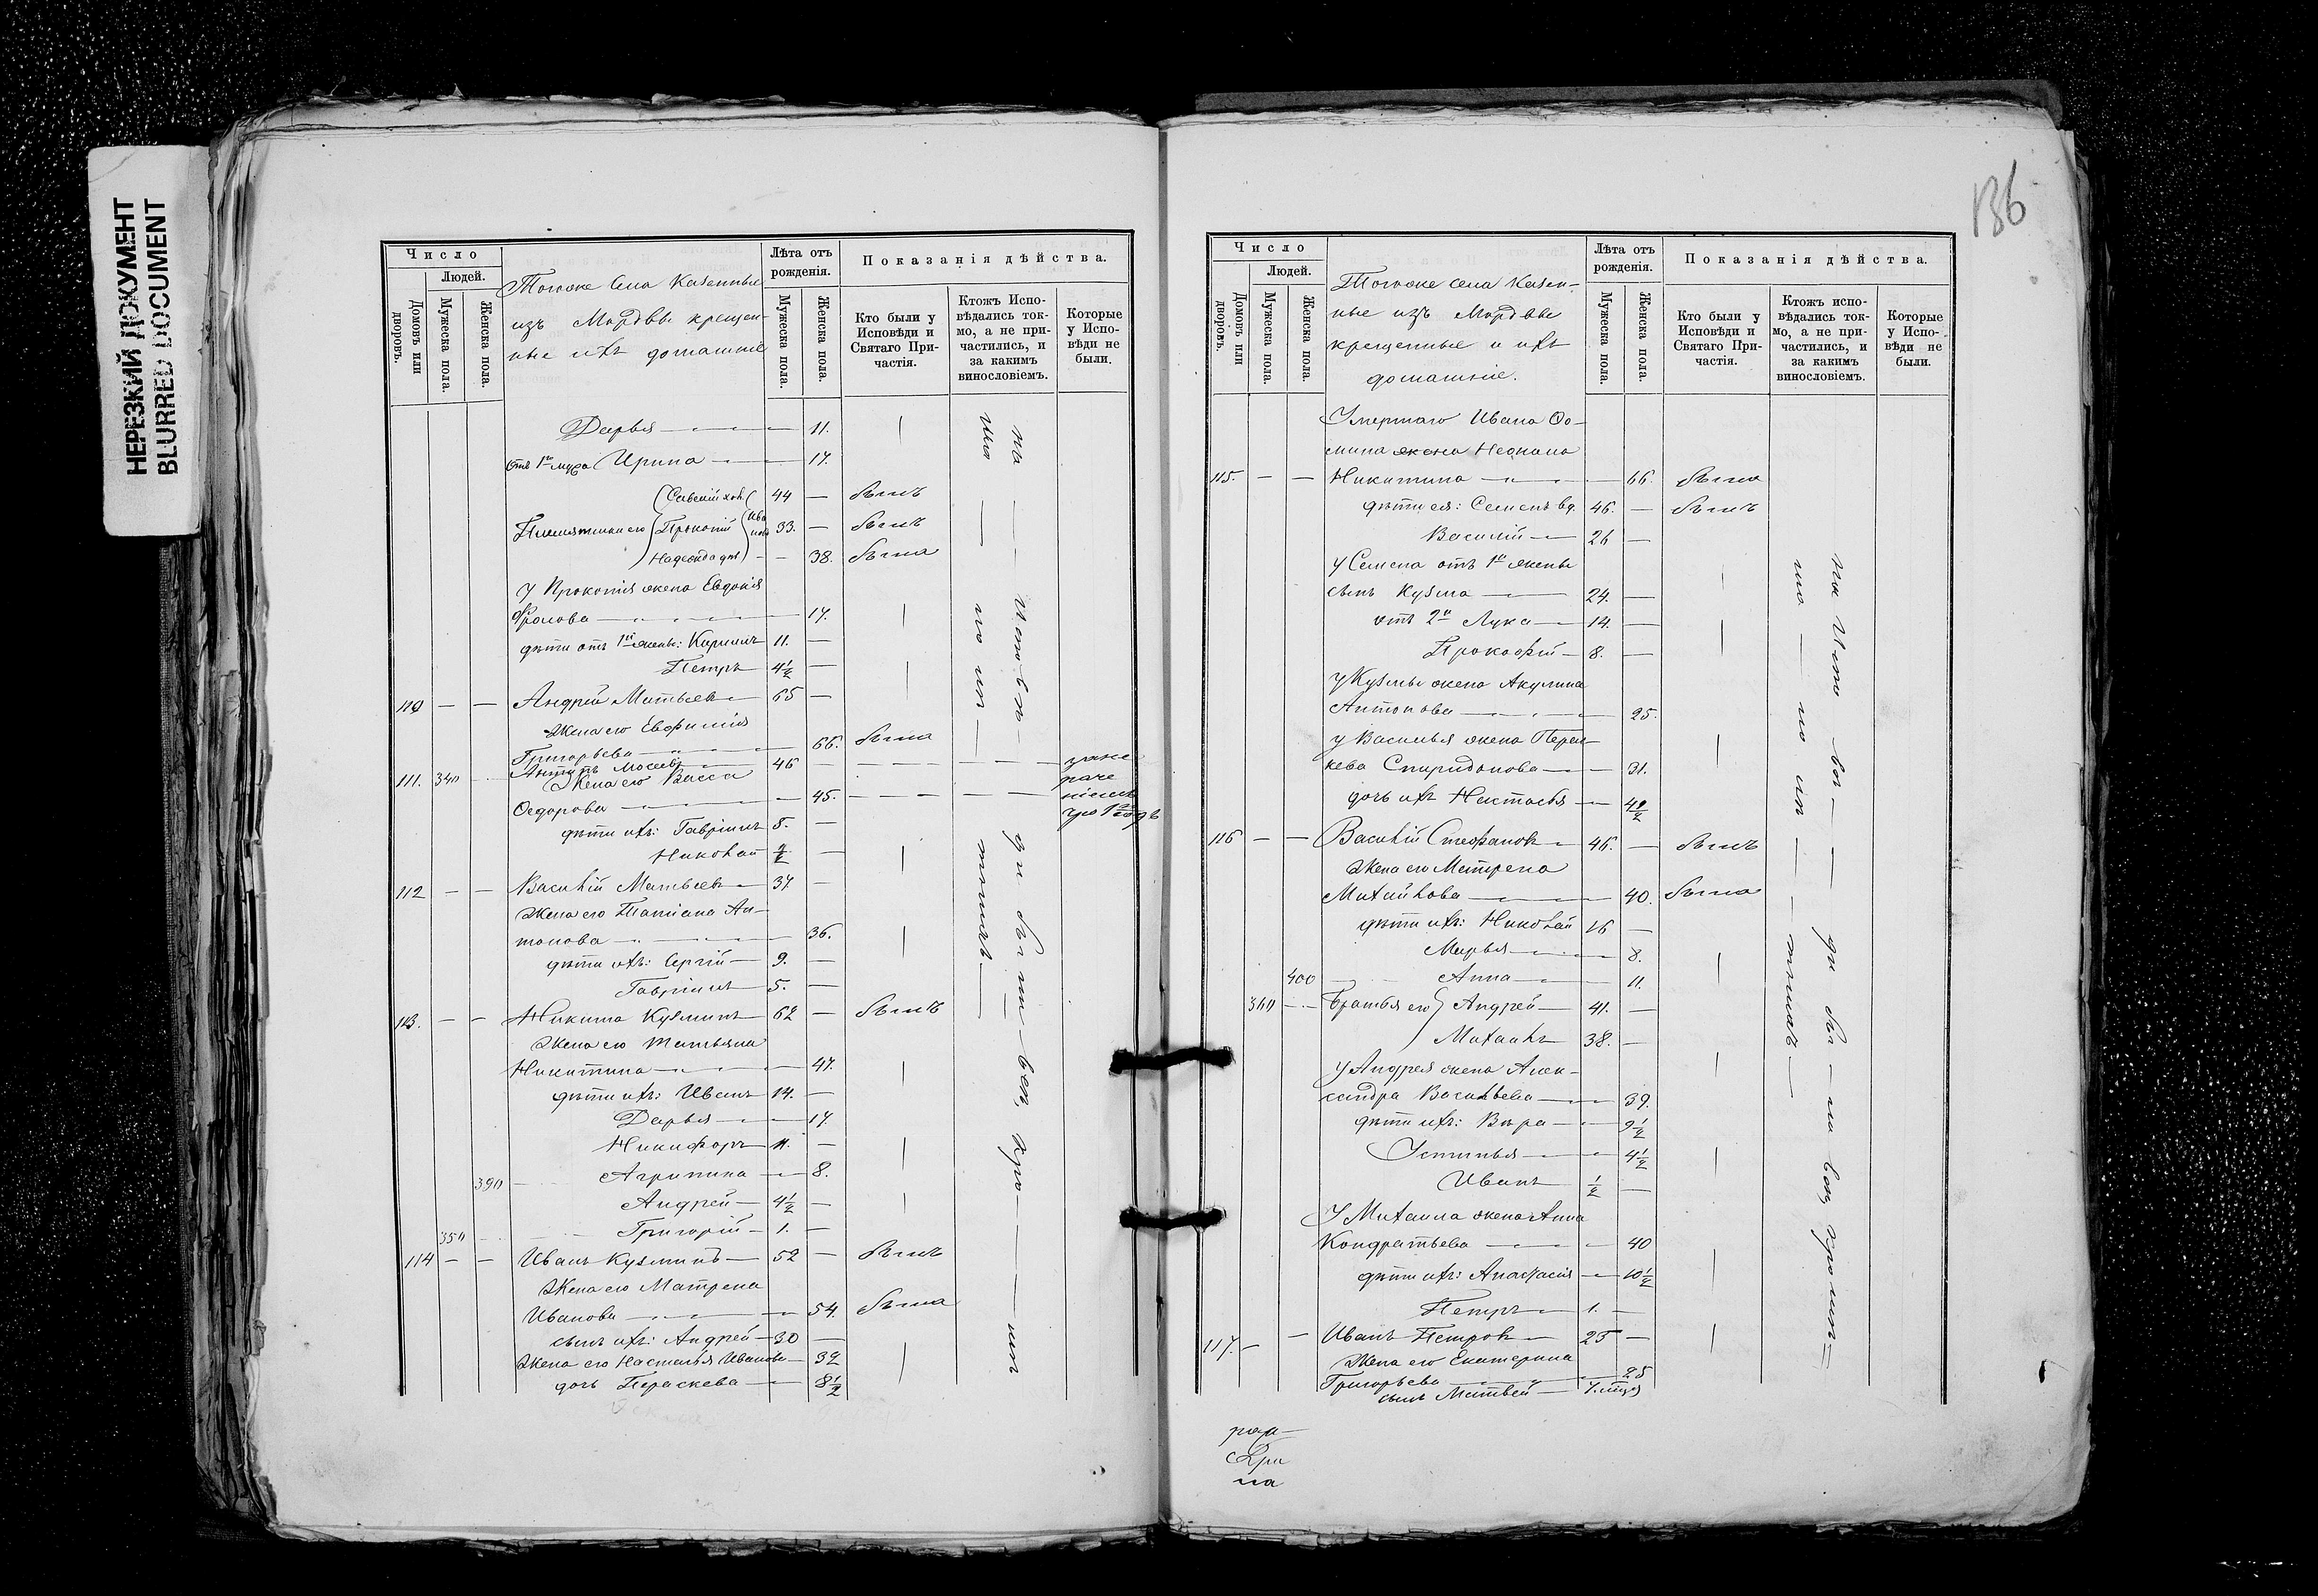 НЕРЕЗКИЙ ДОКУМЕНТ
BLURRED DOCUMENT
Число
Людей.
Домовъ или дворовъ.
Мужеска пола.
Женска пола.
Тогоже Села Казенные
изъ Мордвы крещен-
ные ихъ домашніе
Лѣта отъ рожденія.
Мужеска пола.
Женска пола.
Показанія дѣйства.
Кто были у Исповѣди и Святаго Причастія.
Ктожъ Исповѣдались токмо, а не причастились, и за какимъ винословіемъ.
Которые у Исповѣди не были.
Дарья 11.
Отъ 1го мужа Ирина 17.
Савелій хол. 44 — былъ
Племянники его Прокопій 33. — былъ
Надежда — 38. была
У Прокопія жена Евдокія
Фролова 17.
дѣти отъ 1й жены: Кириллъ 11. —
Петръ 4½ —
110 — — Андрей Матвѣевъ 65 —
Жена его Евфимія
Григорьева 66. была
111. 340 Моисеевъ 46 —
Жена его Васса
Ѳедорова 45.
дѣти ихъ: Гавріилъ 8. —
Николай —
112 — — Василій Матвѣевъ 37 —
Жена его Татіана Ан-
тонова 36.
дѣти ихъ: Сергій 9. —
Гавріилъ 5. —
113. — — Никита Кузминъ 62 — былъ
Жена его Татьяна
Никитина 47.
дѣти ихъ: Иванъ 14. —
Дарья 17.
Никифоръ 11. —
390 Агрипина 8.
Андрей 4½ —
350 Григорій 1. —
114 — — Иванъ Кузминъ 52 — былъ
Жена его Матрена
Иванова 54. была
сынъ ихъ: Андрей 30 —
Жена его Настасья Иванова 32
дочь Параскева 8½
136
Число
Людей.
Домовъ или дворовъ.
Мужеска пола.
Женска пола.
Тогоже села Казен-
ные изъ Мордвы
крещенные и ихъ
домашніе.
Лѣта отъ рожденія.
Мужеска пола.
Женска пола.
Показанія дѣйства.
Кто были у Исповѣди и Святаго Причастія.
Ктожъ исповѣдались токмо, а не причастились, и за какимъ винословіемъ.
Которые у Исповѣди не были.
Умершаго Ивана Ѳо-
мина жена Неонила
115. — — Никитина 66. была
дѣти ея: Семенъ вд. 46. — былъ
Василій 26 —
У Семена отъ 1й жены
сынъ Кузма 24. —
отъ 2й Лука 14. —
Прокофій 8. —
У Кузмы жена Акулина
Антонова 25.
У Василья жена Парас-
кева Спиридонова 31.
дочь ихъ Настасья
116 — — Василій Стефановъ 46. — былъ
Жена его Матрена
Михайлова 40. была
дѣти ихъ: Николай 16 —
Марья 8.
400 Анна 11.
360 Братья его Андрей 41. —
Михаилъ 38. —
У Андрея жена Алек-
сандра Васильева 39.
дѣти ихъ: Вѣра 9½
Устинья 4½
Иванъ ½ —
У Михаила жена Анна
Кондратьева 40
дѣти ихъ: Анастасія 10½
Петръ 1. —
117. — — Иванъ Петровъ 25 —
Жена его Екатерина
Григорьева 25
сынъ Матвей